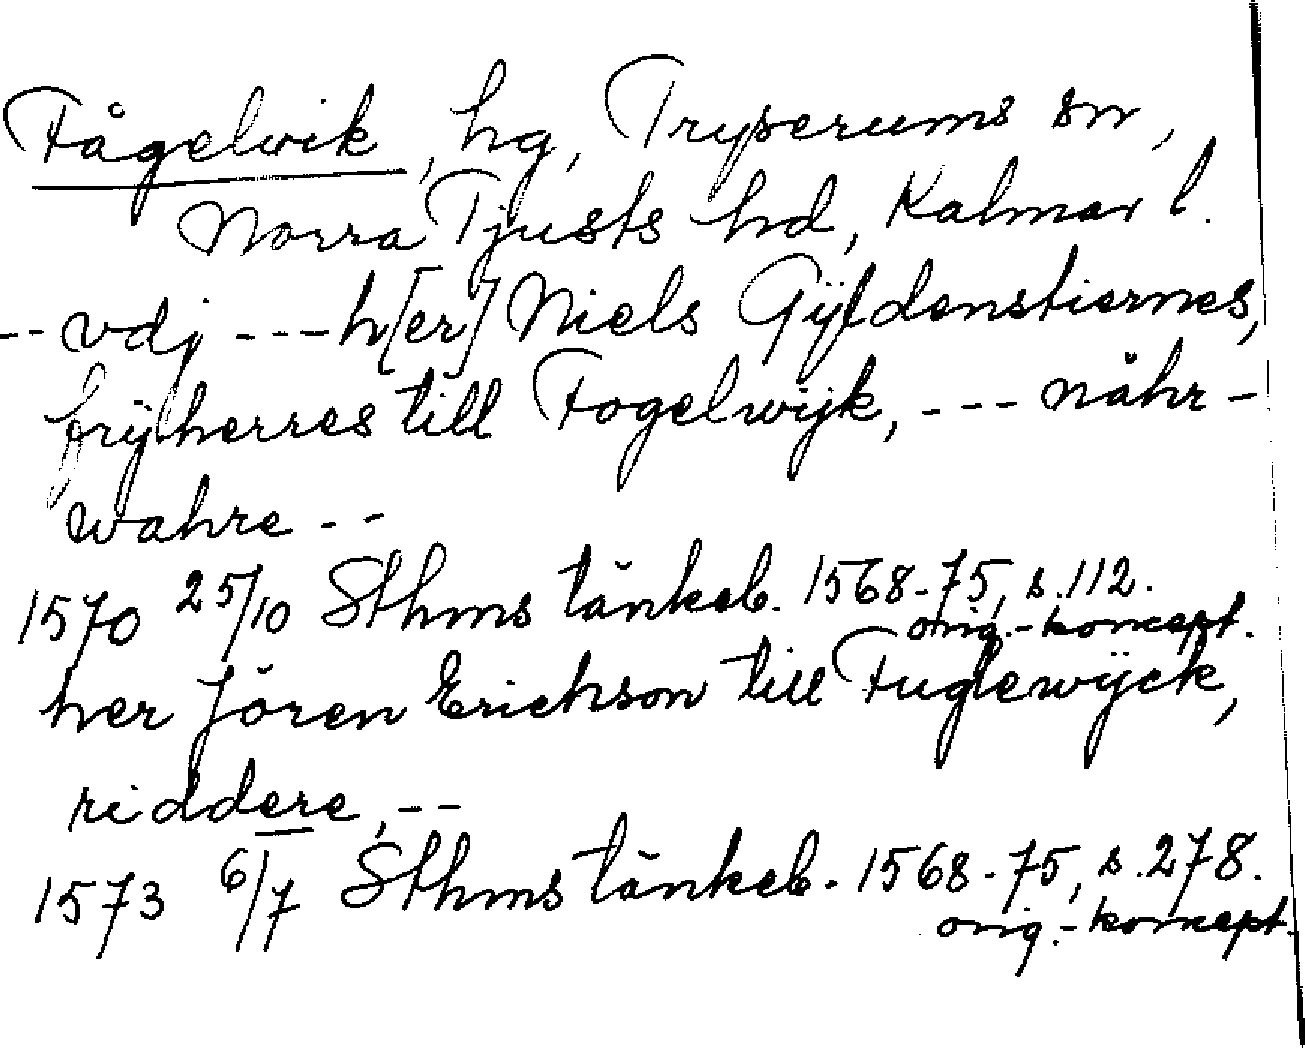 Fågelvik, hg, Tryserums sn,
Norra Tjusts hd, Kalmar l.
-- vdj --- h[er] Niels Gÿldenstiernes,
frÿherres till Fogelwijk, --- nåhr-
wahre --
1570 25/10 Sthms tänkeb. 1568-75, s. 112.
orig.-koncept.
her Jören Erichson till Fuglewÿck,
riddere, --
1573 6/7 Sthms tänkeb. 1568-75, s. 278.
orig.-koncept.